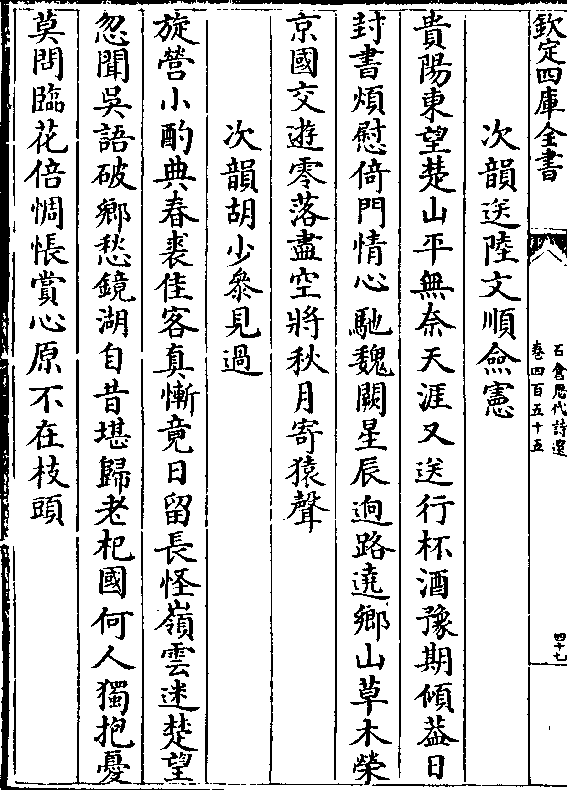 欽定四庫全書
石倉歷代詩選
卷四百五十五
四十七
次韻送陸文順僉憲
貴陽東望楚山平無奈天涯又送行杯酒豫期傾蓋日
封書煩慰倚門情心馳魏闕星辰迥路遶鄉山草木榮
京國交遊零落盡空將秋月寄猿聲
次韻胡少參見過
旋營小酌典春裘佳客真慚竟日留長怪嶺雲迷楚望
忽聞吳語破鄉愁鏡湖自昔堪歸老杞國何人獨抱憂
莫問臨花倍惆悵賞心原不在枝頭